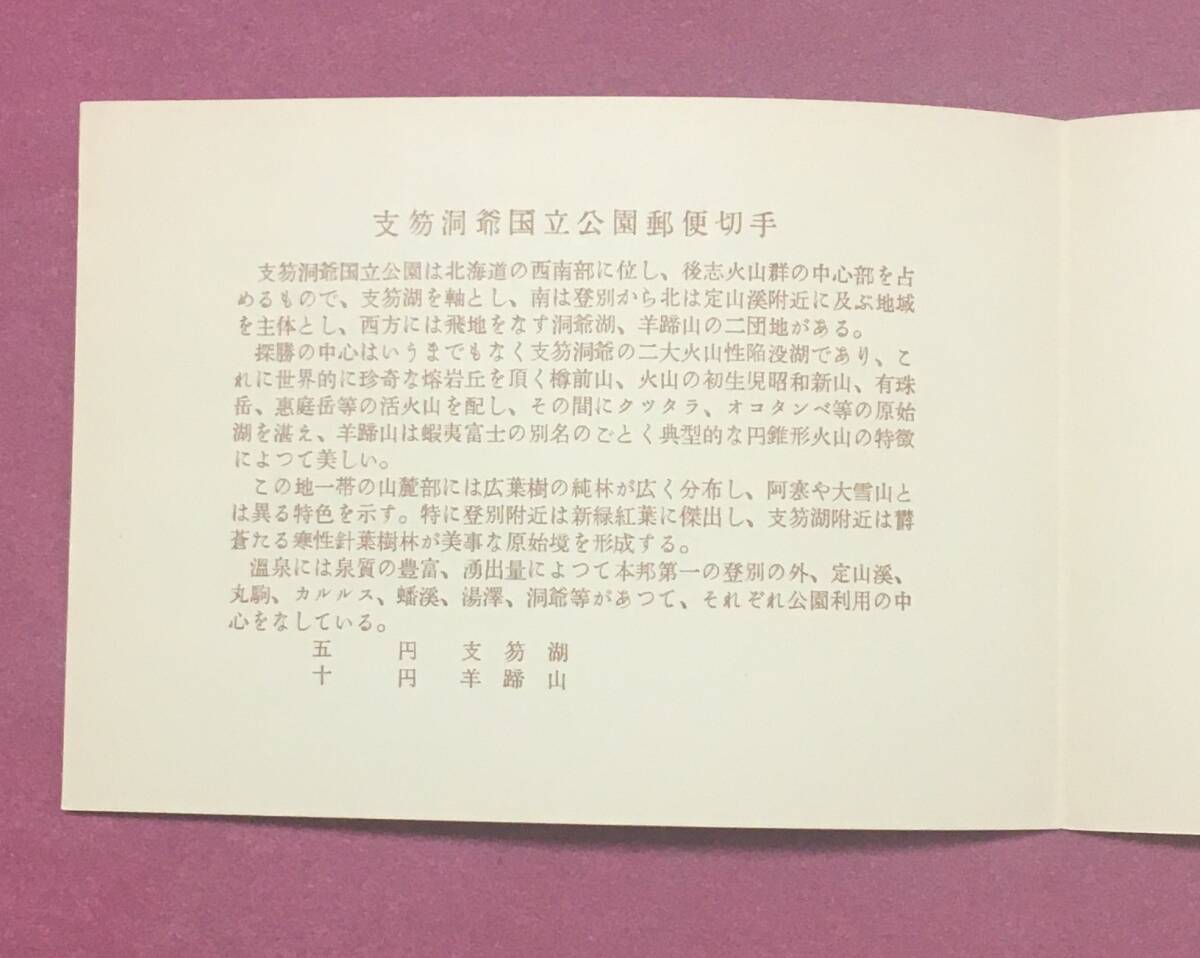 支笏洞爺国立公園郵便切手
支笏洞爺国立公園は北海道の西南部に位し、後志火山群の中心部を占
めるもので、支笏湖を軸とし、南は登別から北は定山溪附近に及ぶ地域
を主体とし、西方には飛地をなす洞爺湖、羊蹄山の二団地がある。
探勝の中心はいうまでもなく支笏洞爺の二大火山性陥没湖であり、こ
れに世界的に珍奇な熔岩丘を頂く樽前山、火山の初生児昭和新山、有珠
岳、惠庭岳等の活火山を配し、その間にクツタラ、オコタンペ等の原始
湖を湛え、羊蹄山は蝦夷富士の別名のごとく典型的な円錐形火山の特徴
によつて美しい。
この地一帯の山麓部には広葉樹の純林が広く分布し、阿寒や大雪山と
は異る特色を示す。特に登別附近は新緑紅葉に傑出し、支笏湖附近は欝
蒼たる寒性針葉樹林が美事な原始境を形成する。
溫泉には泉質の豊富、湧出量によつて本邦第一の登別の外、定山溪、
丸駒、カルルス、蟠溪、湯澤、洞爺等があつて、それぞれ公園利用の中
心をなしている。
五 円 支笏湖
十 円 羊蹄山